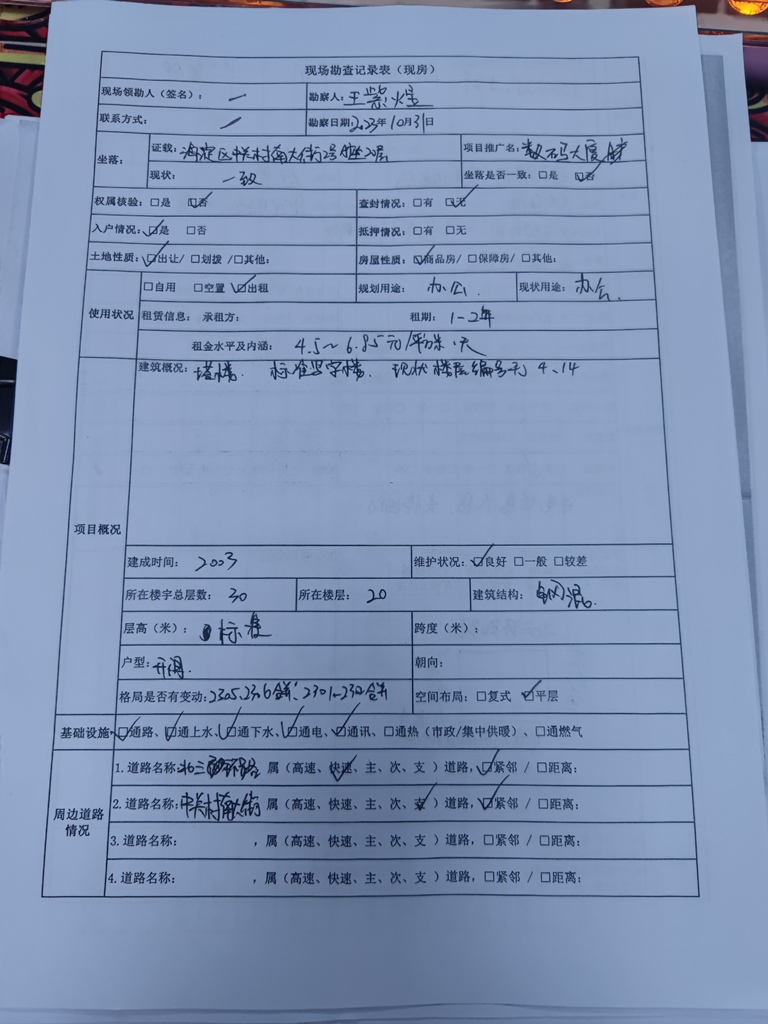 现场勘查记录表（现房）
现场领勘人（签名）： 一 勘察人：王紫煌
联系方式： 一 勘察日期：2023年10月31日
坐落： 证载：海淀区中关村南大街2号 座20层 项目推广名：数码大厦
现状：一致 坐落是否一致：□是 ☑否
权属核验：□是 ☑否 查封情况：□有 ☑无
入户情况：☑是 □否 抵押情况：□有 □无
土地性质：☑出让/ □划拨 /□其他: 房屋性质：☑商品房/ □保障房/ □其他:
使用状况 □自用 □空置 ☑出租 规划用途： 办公. 现状用途： 办公.
租赁信息： 承租方： 租期： 1-2年
租金水平及内涵： 4.5～6.85元/平方米·天
项目概况 建筑概况：塔楼. 标准写字楼. 现状楼层编号无 4、14
建成时间： 2003 维护状况：☑良好 □一般 □较差
所在楼宇总层数： 30 所在楼层： 20 建筑结构： 钢混.
层高（米）： 标准 跨度（米）：
户型: 开间. 朝向：
格局是否有变动：2305.2306合并；2301-2302合并 空间布局：□复式 ☑平层
基础设施：☑通路、☑通上水、☑通下水、☑通电、☑通讯、□通热（市政/集中供暖）、□通燃气
周边道路情况 1.道路名称:北三环路 属（高速、快速、主、次、支 ）道路，☑紧邻 / □距离；
2.道路名称:中关村南大街 属（高速、快速、主、次、支 ）道路，☑紧邻 / □距离；
3.道路名称: ，属（高速、快速、主、次、支 ）道路，□紧邻 / □距离；
4.道路名称: ，属（高速、快速、主、次、支 ）道路，□紧邻 / □距离；